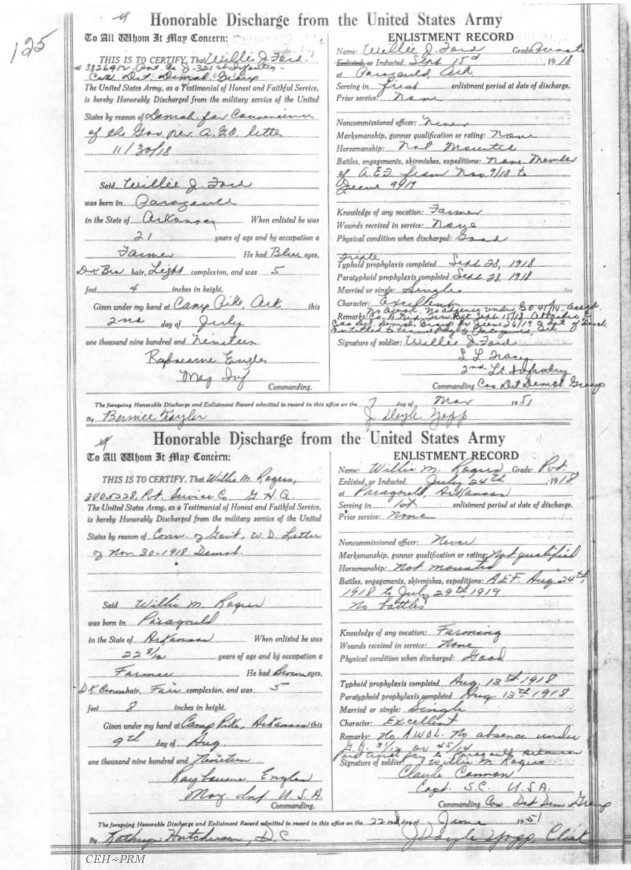 125
Honorable Discharge from the United States Army
To All Whom It May Concern:
THIS IS TO CERTIFY, That Willie J. Ford
The United States Army, as a Testimonial of Honest and Faithful Service,
is hereby Honorably Discharged from the military service of the United
States by reason of Demob. for Convenience
of the Gov. per A.G.O. letter
11/30/18
Said Willie J. Ford
was born in Paragould
in the State of Arkansas When enlisted he was
21 years of age and by occupation a
Farmer He had Blue eyes,
Dk Brn hair, Light complexion, and was 5
feet 4 inches in height.
Given under my hand at Camp Pike, Ark. this
2nd day of July
one thousand nine hundred and Nineteen
Engler
Maj Inf
Commanding.
ENLISTMENT RECORD
Name: Willie J. Ford Grade: Private
Enlisted, or Inducted, Sept 15th 1918
at Paragould, Ark
Serving in first enlistment period at date of discharge.
Prior service: None
Noncommissioned officer: Never
Marksmanship, gunner qualification or rating: None
Horsemanship: Not Mounted
Battles, engagements, skirmishes, expeditions: None Member
of A.E.F. from Nov 9/18 to
June 9/19
Knowledge of any vocation: Farmer
Wounds received in service: None
Physical condition when discharged: Good
Typhoid prophylaxis completed Sept. 28, 1918
Paratyphoid prophylaxis completed Sept. 28 1918
Married or single: Single
Character: Excellent
Remarks: No AWOL. No absence under GO 45/14.
Signature of soldier: Willie J. Ford
L L Tracy
2nd Lt Infantry
Commanding Cas Det Demob Group
The foregoing Honorable Discharge and Enlistment Record admitted to record in this office on the 7 day of Mar 1951
By Bernice J Doyle Yopp
Honorable Discharge from the United States Army
To All Whom It May Concern:
THIS IS TO CERTIFY, That Willie M. Rogers,
3905228, Pvt. Service C. G.H.Q.
The United States Army, as a Testimonial of Honest and Faithful Service,
is hereby Honorably Discharged from the military service of the United
States by reason of Conv. of Govt, W.D. Letter
of Nov. 30-1918 Demob.
Said Willie M. Rogers
was born in Paragould
in the State of Arkansas When enlisted he was
22 years of age and by occupation a
Farmer He had Brown eyes,
Dk Brown hair, Fair complexion, and was 5
feet 8 inches in height.
Given under my hand at Camp Pike, Arkansas this
9th day of Aug
one thousand nine hundred and Nineteen
Engler
Maj Inf U.S.A.
ENLISTMENT RECORD
Name: Willie M. Rogers, Grade: Pvt.
Enlisted, or Inducted, July 24th, 1918
at Paragould, Arkansas
Serving in 1st enlistment period at date of discharge.
Prior service: None
Noncommissioned officer: Never
Marksmanship, gunner qualification or rating: Not qualified
Horsemanship: Not mounted
Battles, engagements, skirmishes, expeditions: A.E.F. Aug 24th,
1918 to July 29th, 1919
No battles
Knowledge of any vocation: Farming
Wounds received in service: None
Physical condition when discharged: Good
Typhoid prophylaxis completed Aug. 13th 1918
Paratyphoid prophylaxis completed Aug. 13th 1918
Married or single: Single
Character: Excellent
Remarks: No A.W.O.L. No absence under
Signature of soldier: Willie M. Rogers
Claude Cannon
Capt. S.C. U.S.A.
Commanding Cas Det Dem Group
The foregoing Honorable Discharge and Enlistment Record admitted to record in this office on the 22nd day of June 1951
By Kathryn Hutcherson, D.C. J Doyle Yopp, Clerk
CEH-PRM